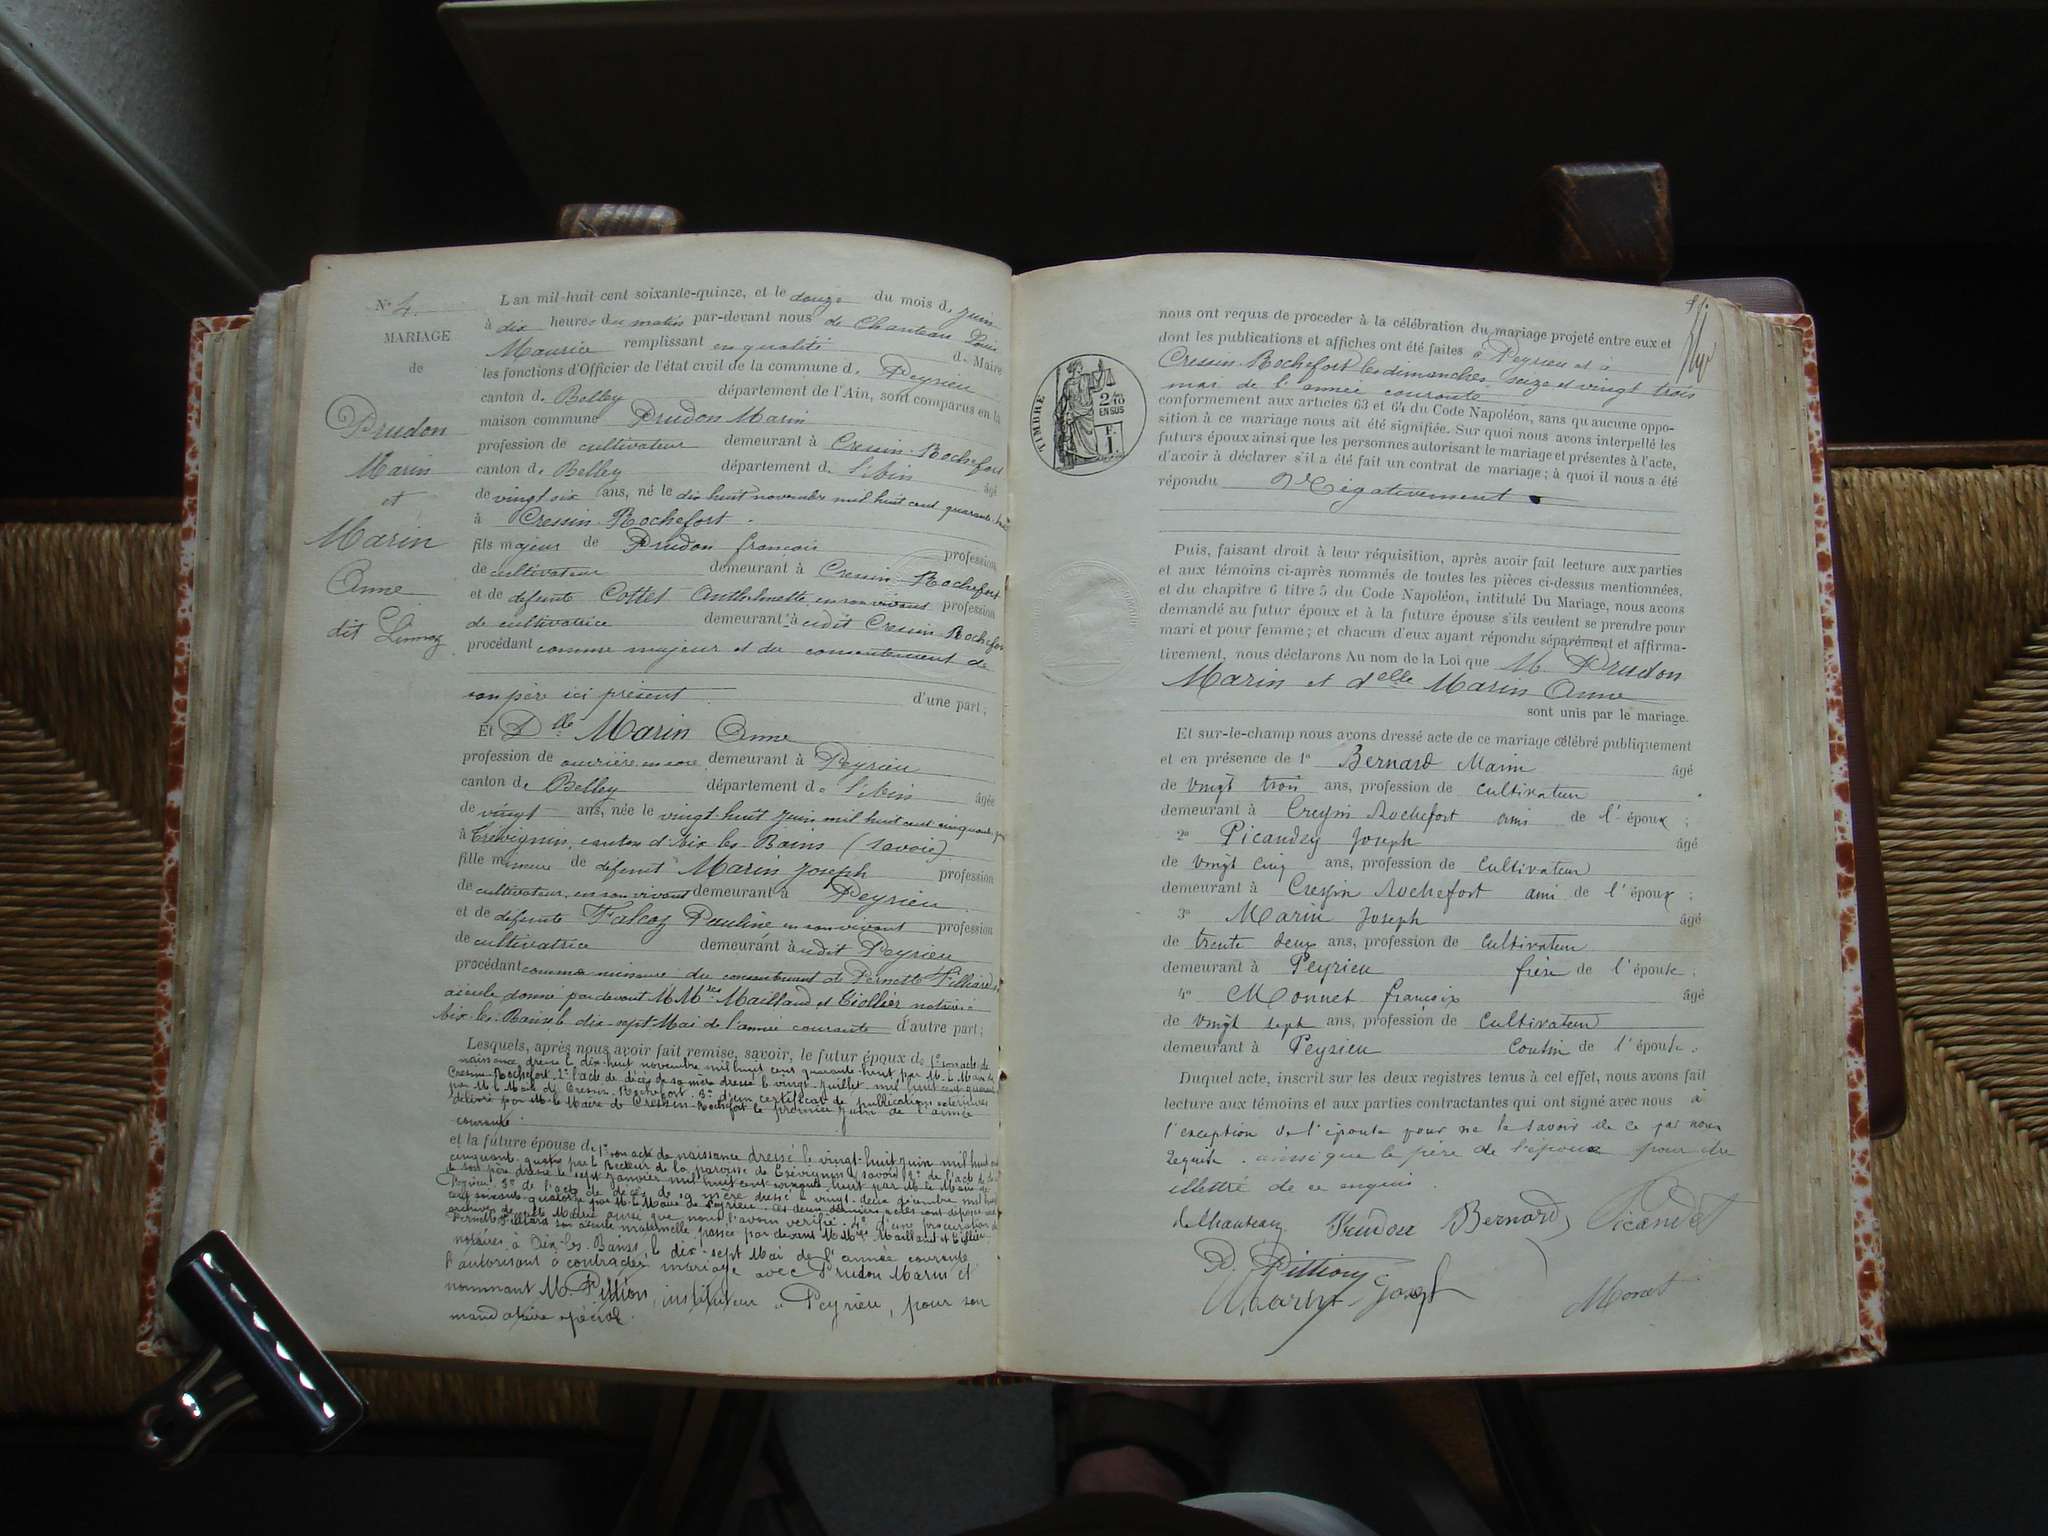 N° 4
MARIAGE
de
Prudon
Marin
et
Marin
Anne
dit
L'an mil-huit cent soixante-quinze, et le douze du mois de juin
à dix heures du matin par-devant nous de Chauteau Louis
Maurice remplissant en qualité de Maire
les fonctions d'Officier de l'état civil de la commune de Peyrieu
canton de Belley département de l'Ain, sont comparus en la
maison commune Prudon Marin
profession de cultivateur demeurant à Cressin-Rochefort
canton de Belley département de l'Ain âgé
de vingt six ans, né le dix huit novembre mil huit cent quarante huit
à Cressin-Rochefort
fils majeur de Prudon françois profession
de cultivateur demeurant à Cressin-Rochefort
et de defunte Cottet en son vivant profession
de cultivatrice demeurant à udit Cressin Rochefort
procédant comme majeur et du consentement de
son père ici présent d'une part;
Et Dlle Marin Anne
profession de ouvrière en soie demeurant à Peyrieu
canton de Belley département de l'Ain âgée
de vingt ans, née le vingt-huit juin mil huit cent cinquante
à Trévignin, canton d'Aix les-Bains (Savoie)
fille mineure de défunt Marin Joseph profession
de cultivateur en son vivant demeurant à Peyrieu
et de defunte Falcoz Pauline en son vivant profession
de cultivatrice demeurant à udit Peyrieu
procédant comme mineure du consentement de Pernette Filliard
aieule donné par devant MMtres Mailland et Tiollier notaires à
Aix-les-Bains le dix-sept Mai de l'année courante d'autre part;
Lesquels, après nous avoir fait remise, savoir, le futur époux de 1° son acte de
naissance dressé le dix-huit novembre mil huit cent quarante-huit par M. le Maire de
Cressin-Rochefort 2° l'acte de décès de sa mère dressé le vingt juillet mil huit cent
par M. le Maire de Cressin-Rochefort 3° d'un certificat de publication
délivré par M. le Maire de Cressin-Rochefort le premier juin de l'année
courante
et la future épouse de 1° son acte de naissance dressé le vingt-huit juin mil huit cent
cinquante-quatre par le Recteur de la paroisse de Trévignin (Savoie) 2° de l'acte de décès
de son père dressé le sept janvier mil huit cent cinquante huit par M. le Maire de
Peyrieu 3° de l'acte de décès de sa mère dressé le vingt-deux décembre mil huit
cent soixante-quatorze par M. le Maire de Peyrieu. Ces deux derniers actes sont déposés aux
archives de cette Mairie ainsi que nous l'avons vérifié. 4° d'une procuration de
Pernette Filliard son aieule maternelle passée par devant MMtres Mailland et Tiollier
notaires à Aix-les-Bains, le dix-sept Mai de l'année courante
l'autorisant à contracter mariage avec Prudon Marin et
nommant M. Pittion, instituteur à Peyrieu, pour son
mandataire spécial.
nous ont requis de proceder à la célébration du mariage projeté entre eux et
dont les publications et affiches ont été faites à Peyrieu et à
Cressin-Rochefort les dimanches seize et vingt trois
mai de l'année courante
conformement aux articles 63 et 64 du Code Napoléon, sans qu'aucune oppo-
sition à ce mariage nous ait été signifiée. Sur quoi nous avons interpellé les
futurs époux ainsi que les personnes autorisant le mariage et présentes à l'acte,
d'avoir à déclarer s'il a été fait un contrat de mariage; à quoi il nous a été
répondu Négativement
TIMBRE
2/10
EN SUS
1 F.
Puis, faisant droit à leur réquisition, après avoir fait lecture aux parties
et aux témoins ci-après nommés de toutes les pièces ci-dessus mentionnées,
et du chapitre 6 titre 5 du Code Napoléon, intitulé Du Mariage, nous avons
demandé au futur époux et à la future épouse s'ils veulent se prendre pour
mari et pour femme; et chacun d'eux ayant répondu séparément et affirma-
tivement, nous déclarons Au nom de la Loi que M. Prudon
Marin et delle Marin Anne
sont unis par le mariage.
Et sur-le-champ nous avons dressé acte de ce mariage célébré publiquement
et en présence de 1° Bernard Marin âgé
de vingt trois ans, profession de cultivateur
demeurant à Cressin Rochefort ami de l'époux;
2° Picandey Joseph âgé
de vingt cinq ans, profession de cultivateur
demeurant à Cressin Rochefort ami de l'époux;
3° Marin Joseph âgé
de trente deux ans, profession de cultivateur
demeurant à Peyrieu frère de l'épouse;
4° Monnet françois âgé
de vingt sept ans, profession de cultivateur
demeurant à Peyrieu cousin de l'épouse.
Duquel acte, inscrit sur les deux registres tenus à cet effet, nous avons fait
lecture aux témoins et aux parties contractantes qui ont signé avec nous à
l'exception de l'épouse pour ne le savoir de ce par nous
requise ainsi que le père de l'époux pour être
illettré de ce enquis.
de Chauteau Prudon Bernard Picandet
P. Pittion
Marin Josepf Monet